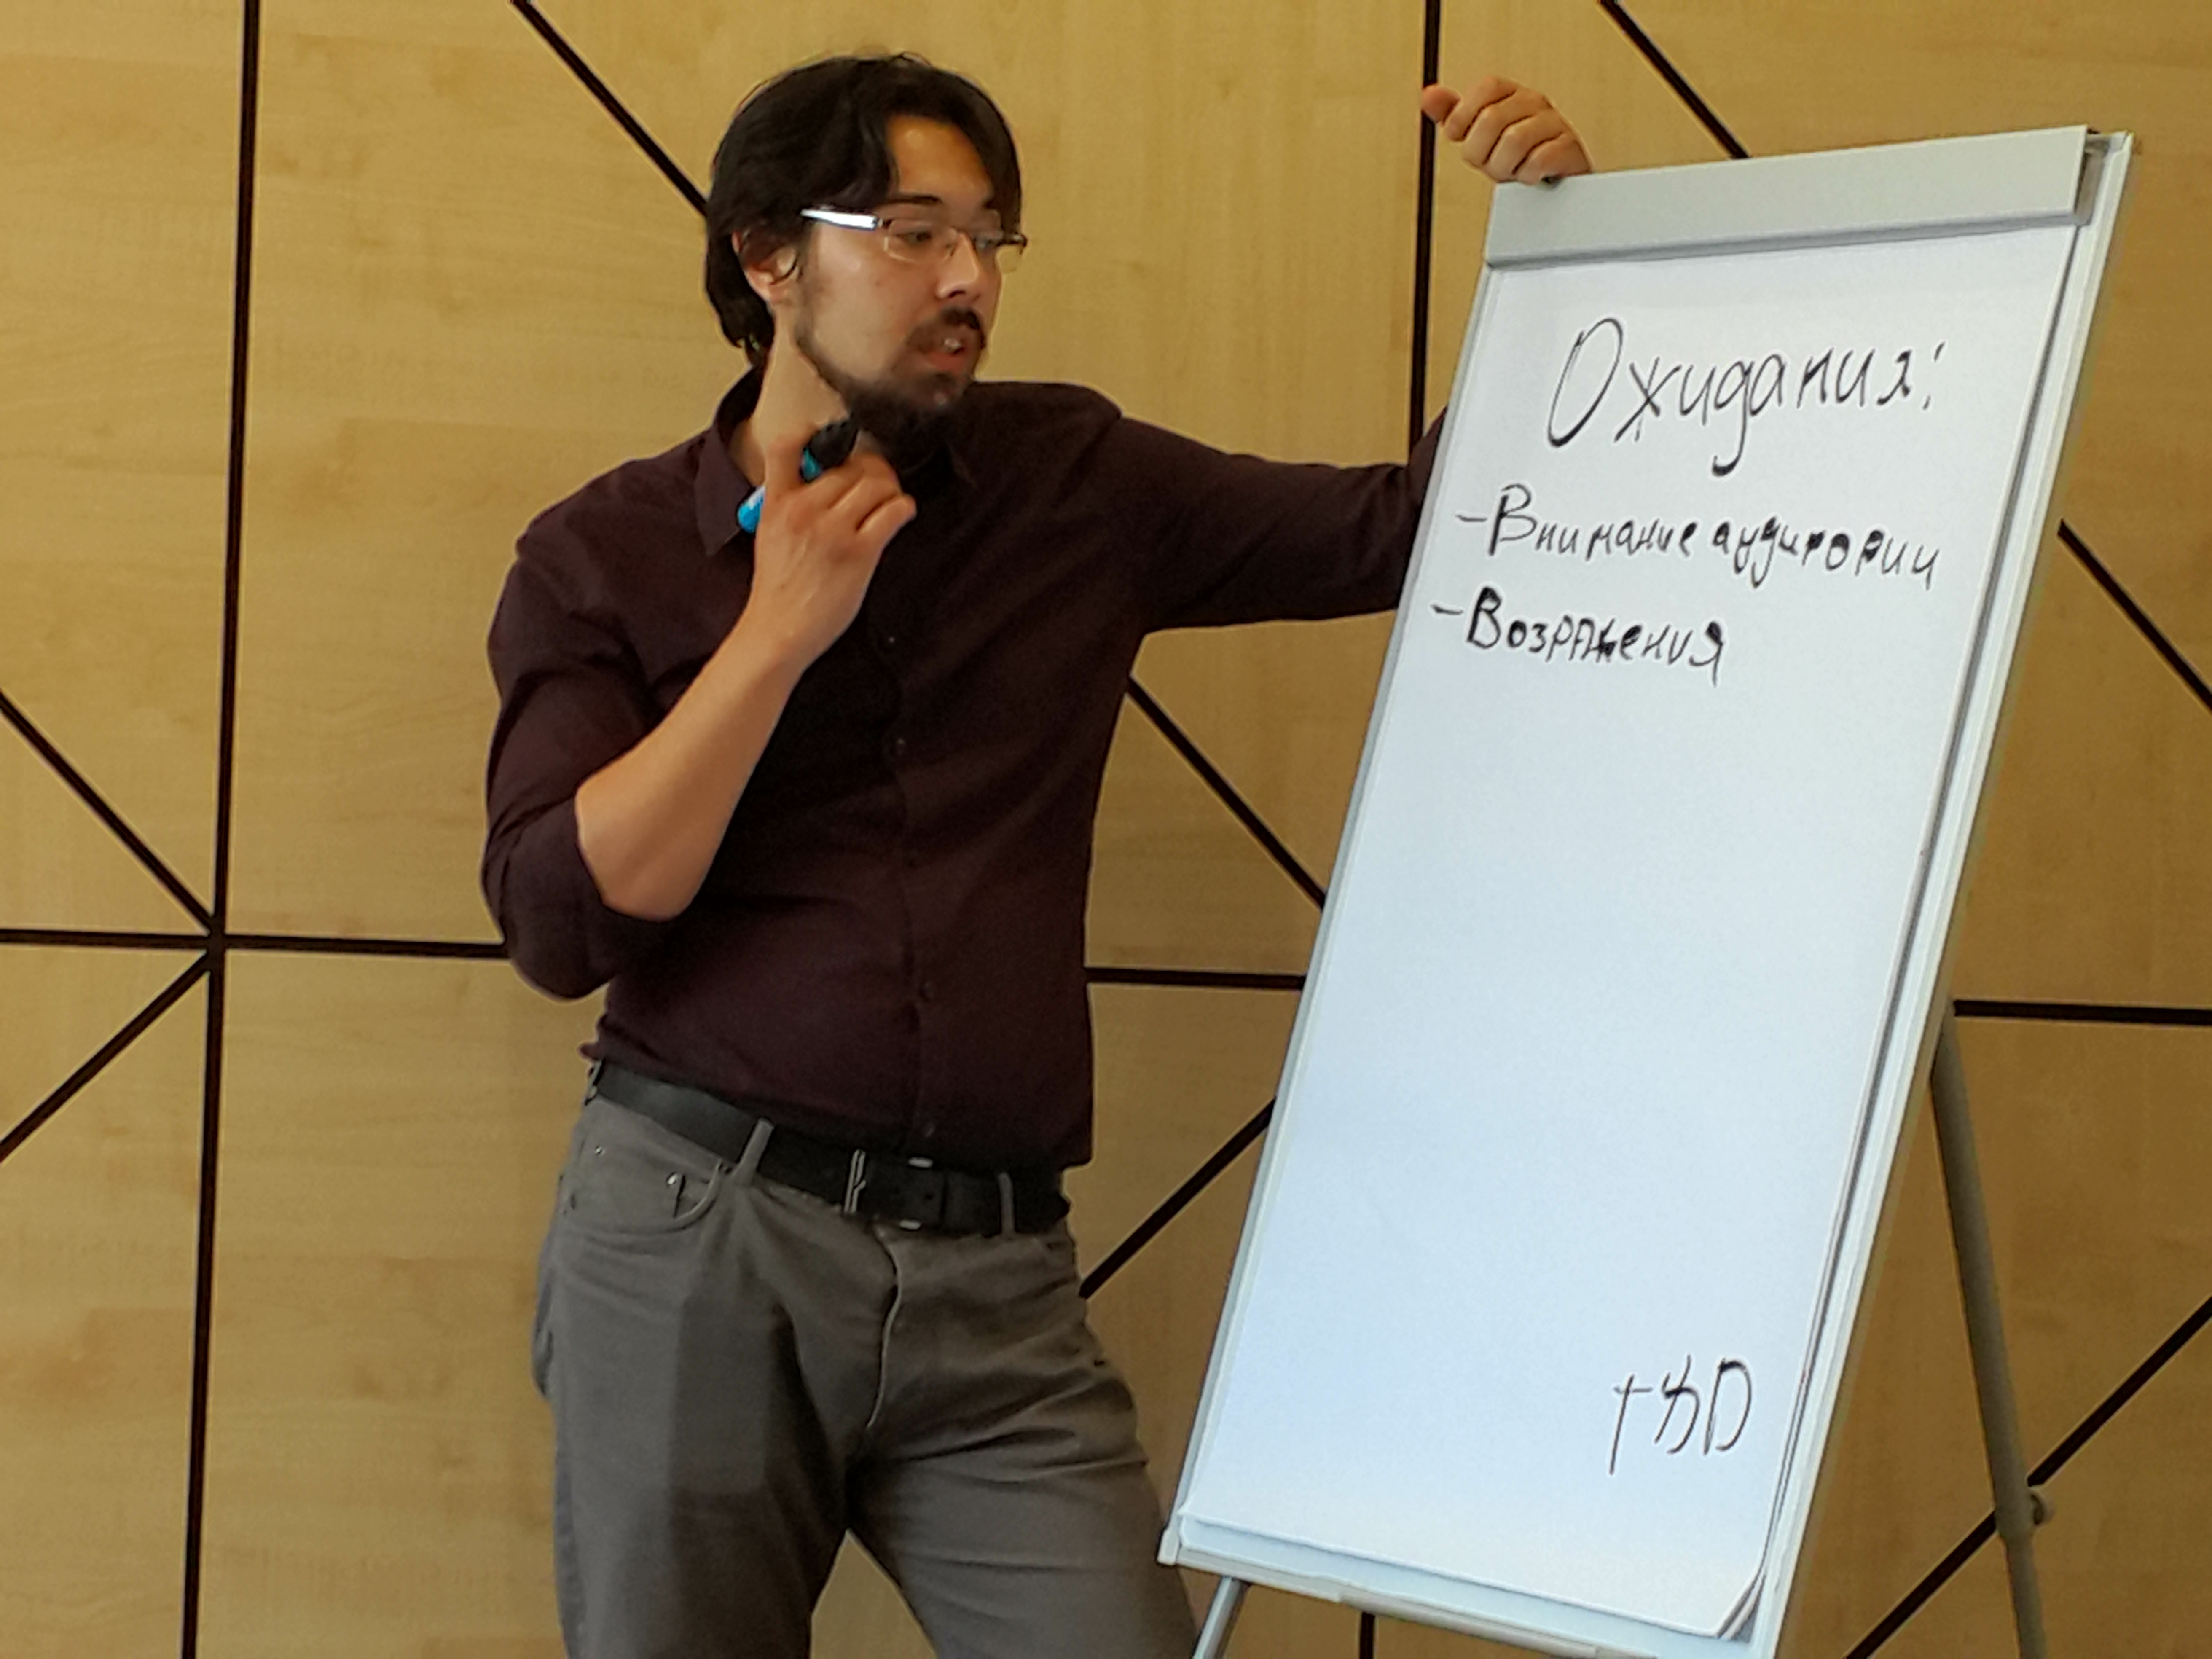 Ожидания:
- Внимание аудитории
- Возражения